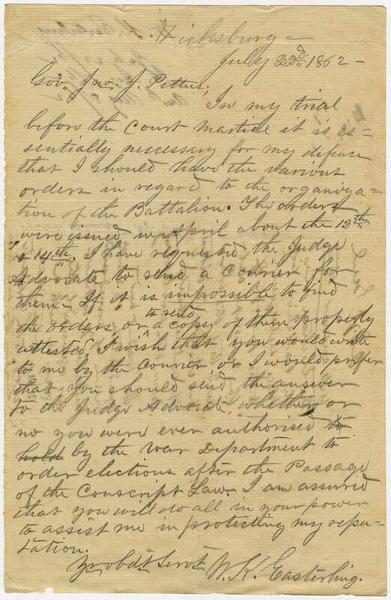 Vicksburg
July 22d 1862-
Gov. Jno. J. Pettus;
In my trial
before the Court Martial it is es-
sentially necessary for my defence
that I should have the various
orders in regard to the organiza-
tion of the Battalion. The orders
were issued in April about the 12th
& 14th. I have requested the Judge
Advocate to send a Courier for
them. If it is impossible to find
to send
the orders or a copy of them properly
attested I wish that you would write
to me by the Courier or I would prefer
that you should send the answer
to the Judge Advocate, whether or
no you were ever authorised to
hold by the War Department to
order elections after the Passage
of the Conscript Law. I am assured
that you will do all in your power
to assist me in protecting my repu-
tation.
Yr obdt Servt
W. K. Easterling.